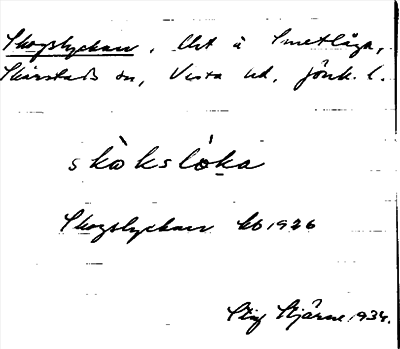 Skogslyckan, lht å Smetlåga,
Skärstads sn, Vista hd, Jönk. l.
skòkslóka
Skogslyckan kb 1926
Stig Stjärne 1934.